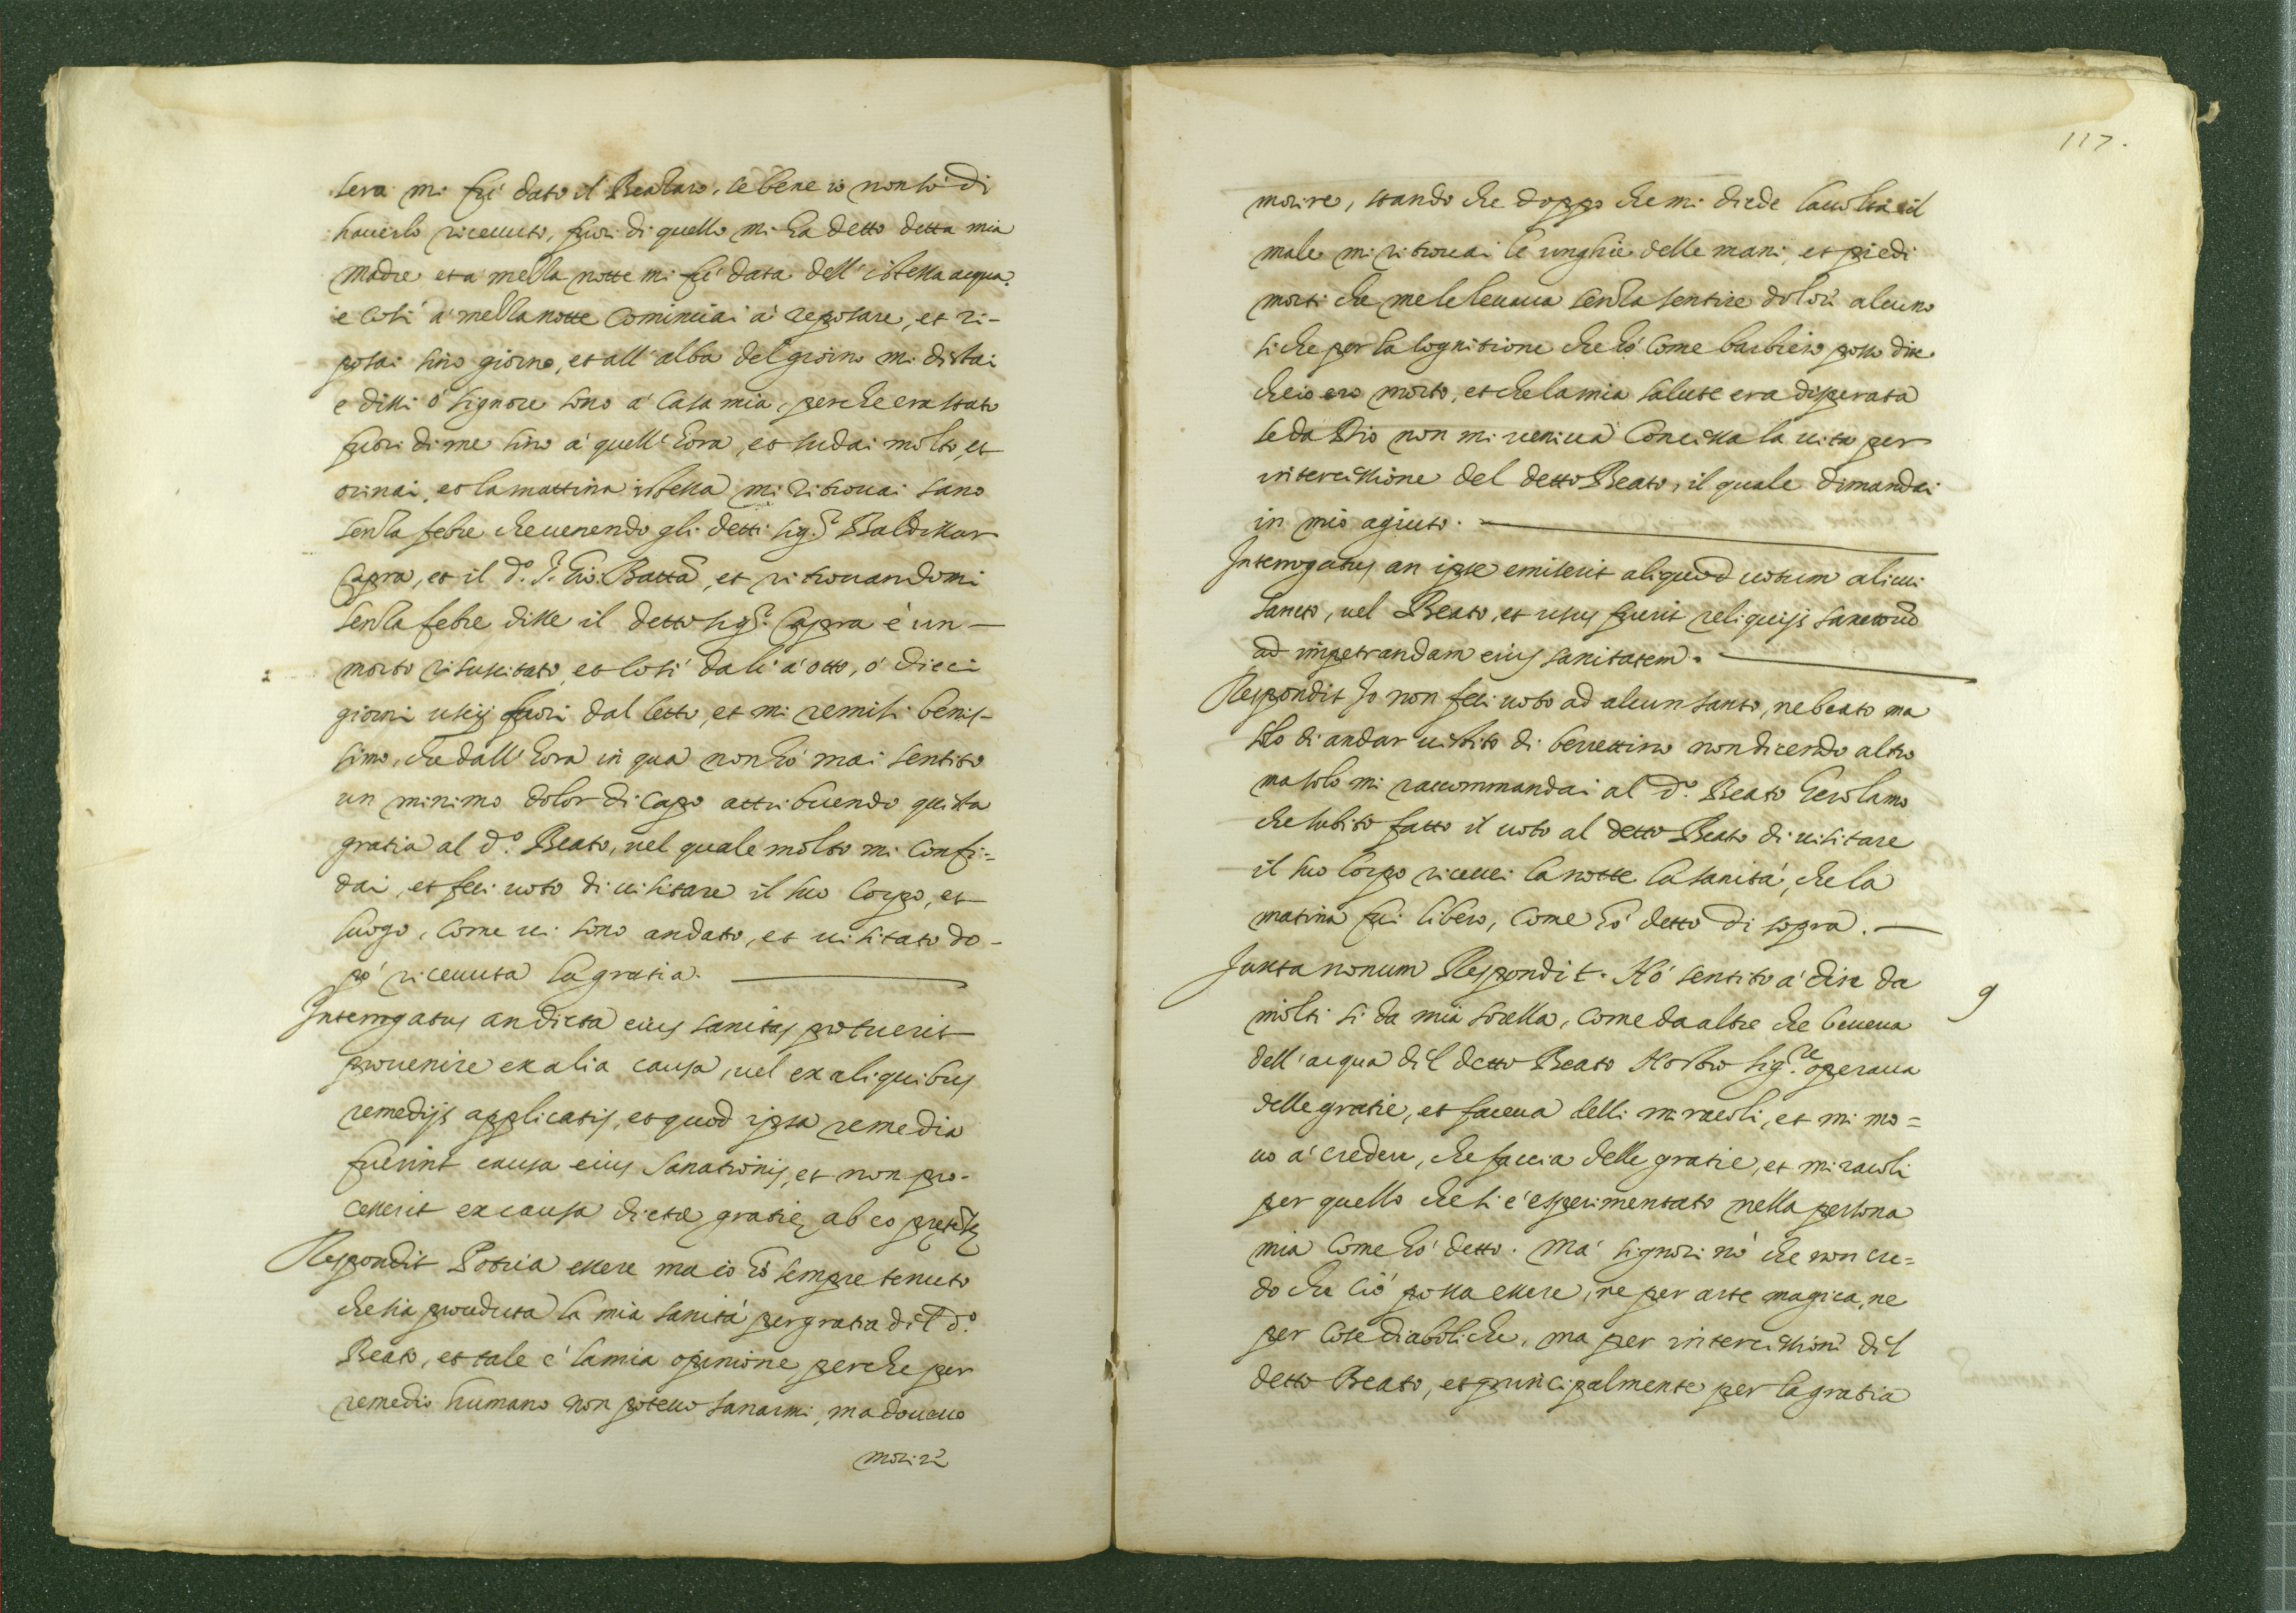 sera mi fù dato il Beataro, se bene io non sò di
hauerlo riceuuto, fuori di quello mi ha detto detta mia
madre et à mezza notte mi fù data dell' istessa acqua,
e così à mezza notte cominciai à reposare, et ri-
posai sino giorno, et all' alba del giorno mi distai
e dissi ò signore sono à casa mia, perche era stato
fuori di me sino à quell' hora, et sudai molto, et
orinai, et la mattina istessa mi ritrouai sano
senza febre che uenendo gli detti sig.ri Baldissar
Capra, et il d.o P. Gio: Batta, et ritrouandomi
senza febre disse il detto sig.r Capra è un
morto risuscitato, et così da lì à otto, ò dieci
giorni uscij fuori dal letto, et mi remisi benis-
simo, che dall' hora in qua non hò mai sentito
un minimo dolor di capo attribuendo questa
gratia al d.o Beato, nel quale molto mi confi=
dai, et feci uoto di uisitare il suo corpo, et
luogo, come ui sono andato, et uisitato do-
pò riceuuta la gratia.
Interrogatus an dicta eius sanitas potuerit
prouenire ex alia causa, uel ex aliquibus
remedijs applicatis, et quod ipsa remedia
fuerint causa eius sanationis, et non pro-
cesserit ex causa dictæ gratię ab eo
Respondit Potria essere ma io hò sempre tenuto
che sia proceduta la mia sanità per gratia dil d.o
Beato, et tale è la mia opinione, perche per
remedio humano non poteuo sanarmi, ma doueuo
morire
117.
morire, stando che doppo che mi diede l'accolta il
male mi ritrouai le unghie delle mani, et piedi
morti che me le leuaua senza sentire dolor alcuno
si che per la cognitione che hò come barbiero posso dire
che io ero morto, et che la mia salute era disperata
se da Dio non mi ueniua concessa la uita per
intercessione del detto Beato, il quale dimandai
in mio agiuto.
Interrogatus an ipse emiserit aliquod uotum alicui
sancto, uel Beato, et usus fuerit reliquijs sanctorum
ad impetrandam eius sanitatem.
Respondit Io non feci uoto ad alcun santo, ne beato ma
solo di andar uistito di berrettino non dicendo altro
ma solo mi raccommandai al d.o Beato Gerolamo
che subito fatto il uoto al detto Beato di uisitare
il suo corpo riceuei la notte la sanità, che la
matina fui libero, come hò detto di sopra.
Juxta nonum Respondit. Hò sentito à dire da
9
molti si da mia sorella, come da altre che beueua
dell' acqua dil detto Beato Nostro Sig.re operaua
delle gratie, et faceua delli miracoli, et mi mo=
uo à credere, che faccia delle gratie, et miracoli
per quello che si è esperimentato nella persona
mia come hò detto. Mà signori nò che non cre=
do che ciò possa essere, ne per arte magica, ne
per cose diaboliche, ma per intercessioni dil
detto Beato, et principalmente per la gratia